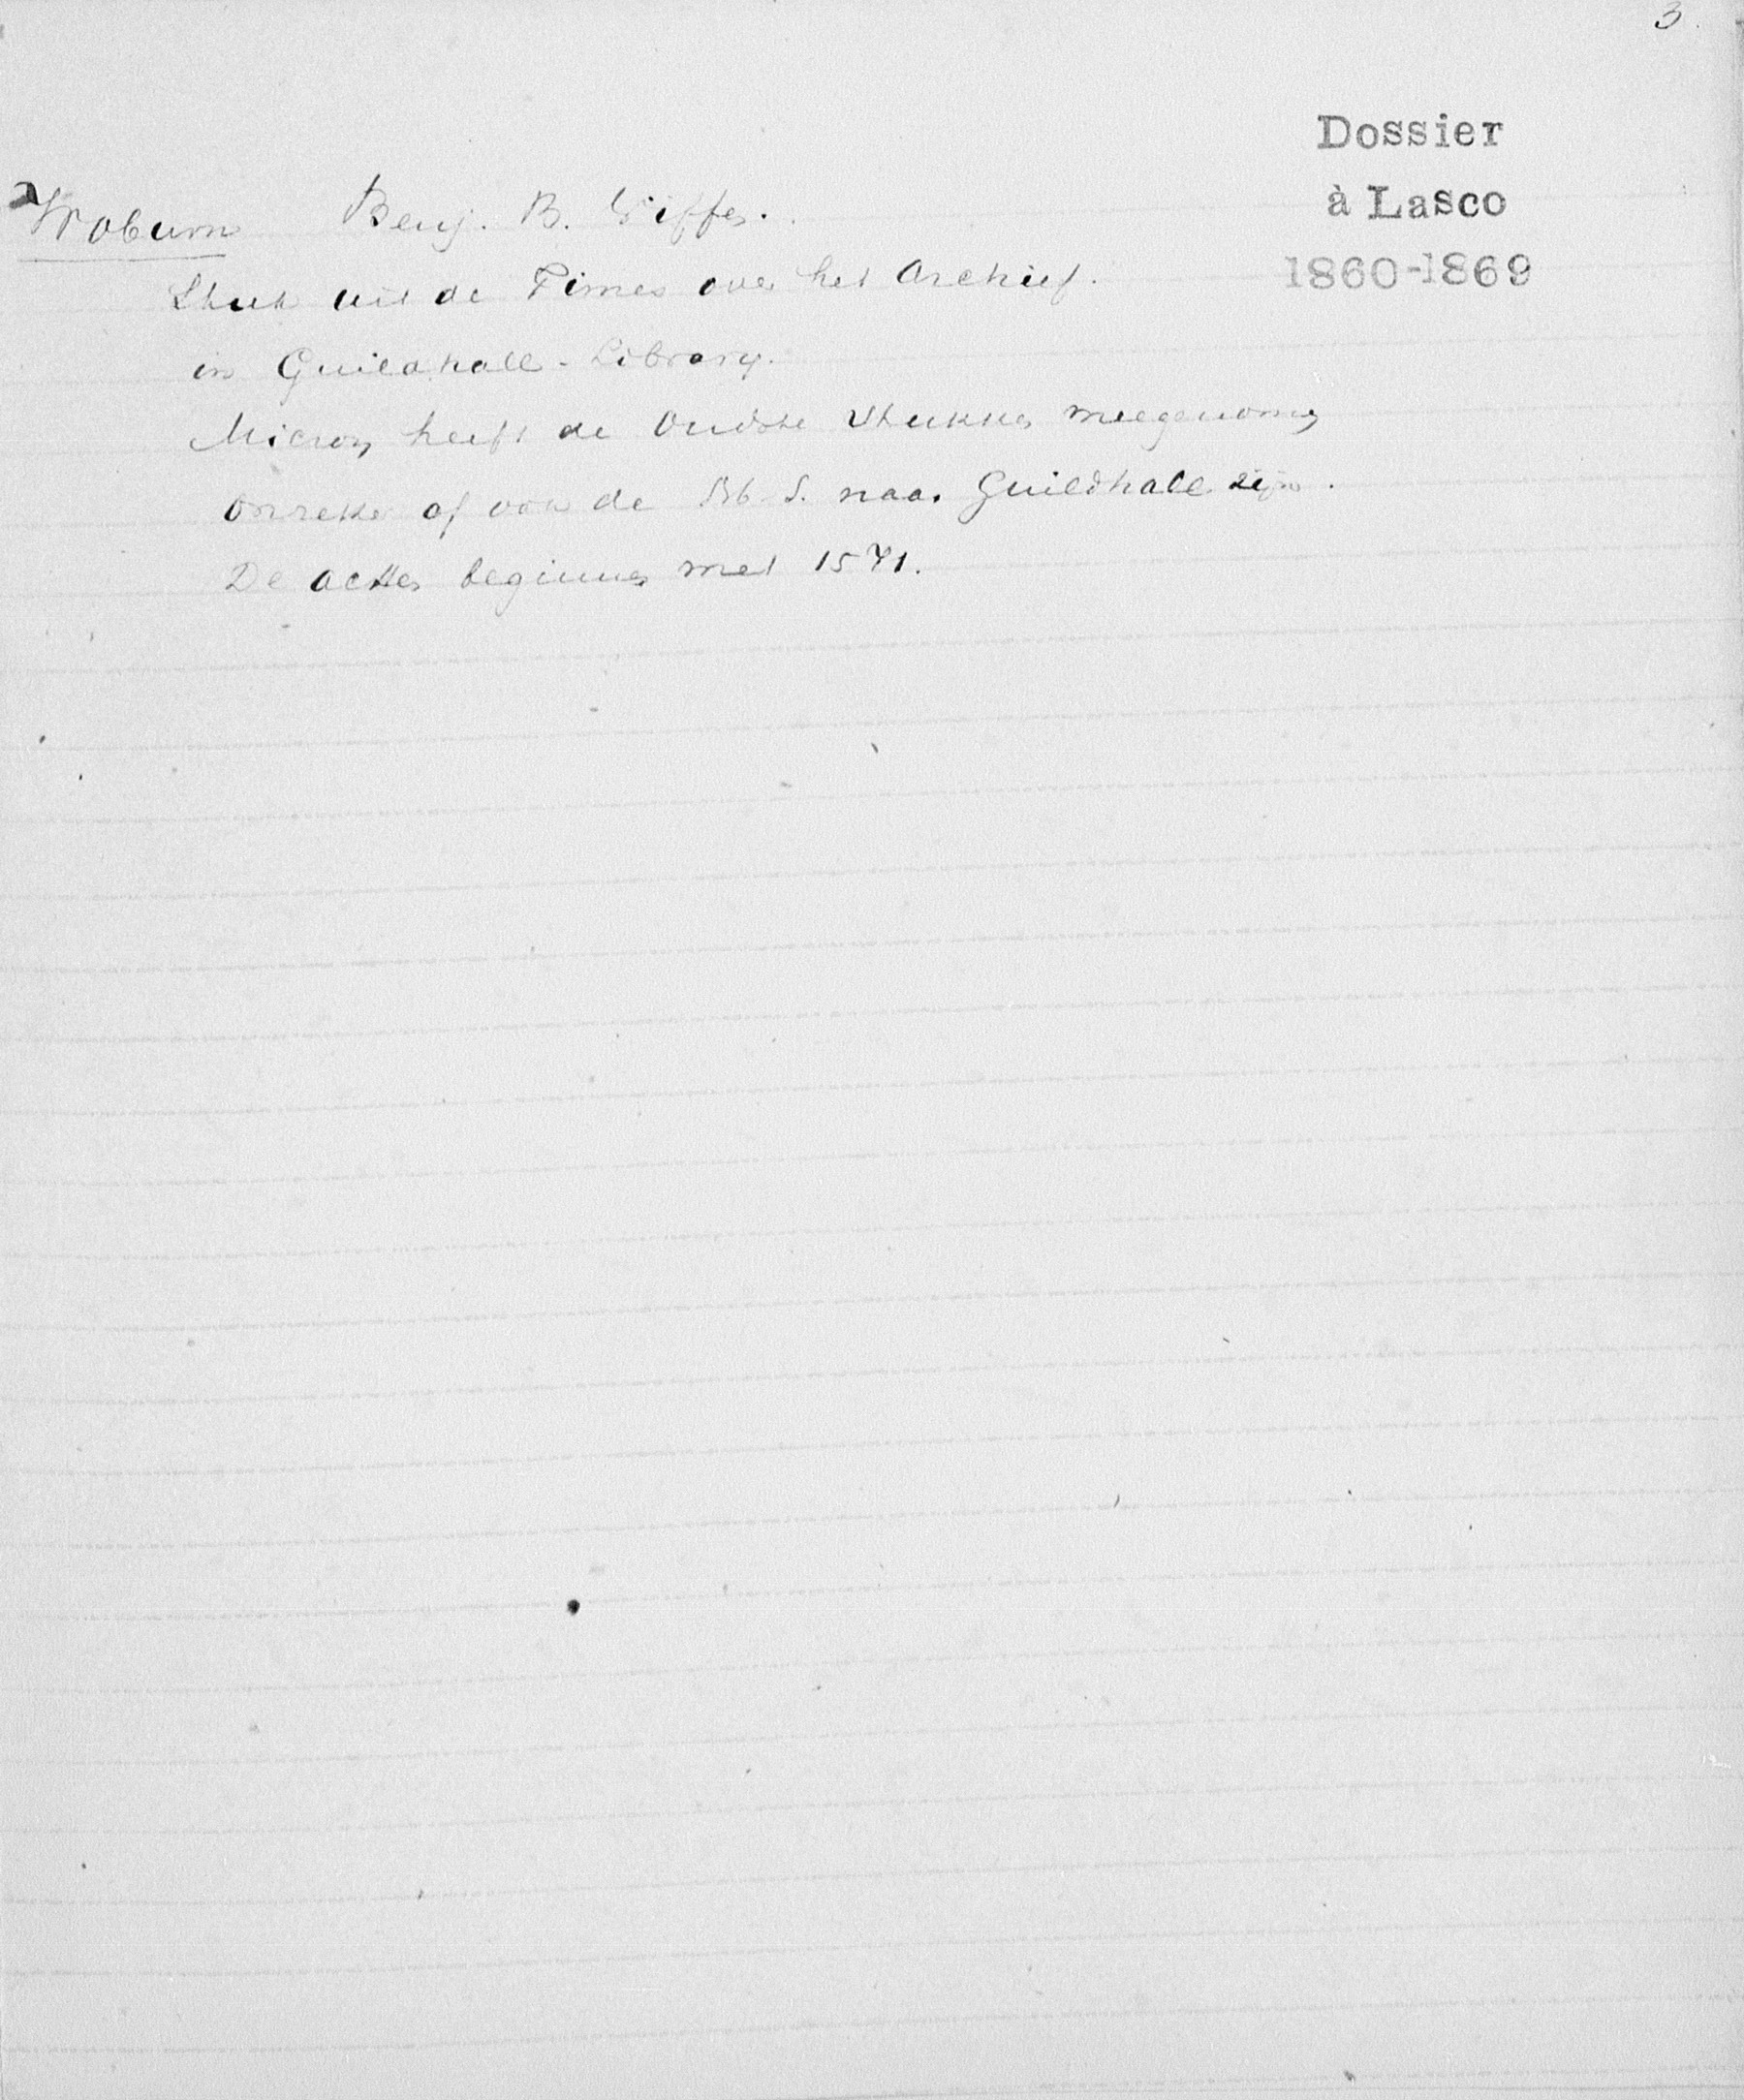 3.
Dossier
à Lasco
1860-1869
Woburn Benj. B. Wiffen.
Stuk uit de Times over het Archief.
in Guildhall-Library.
Micron heeft de Oudste Stukken meegenomen
of van de naar Guildhall zijn.
De acten beginnen met 1571.